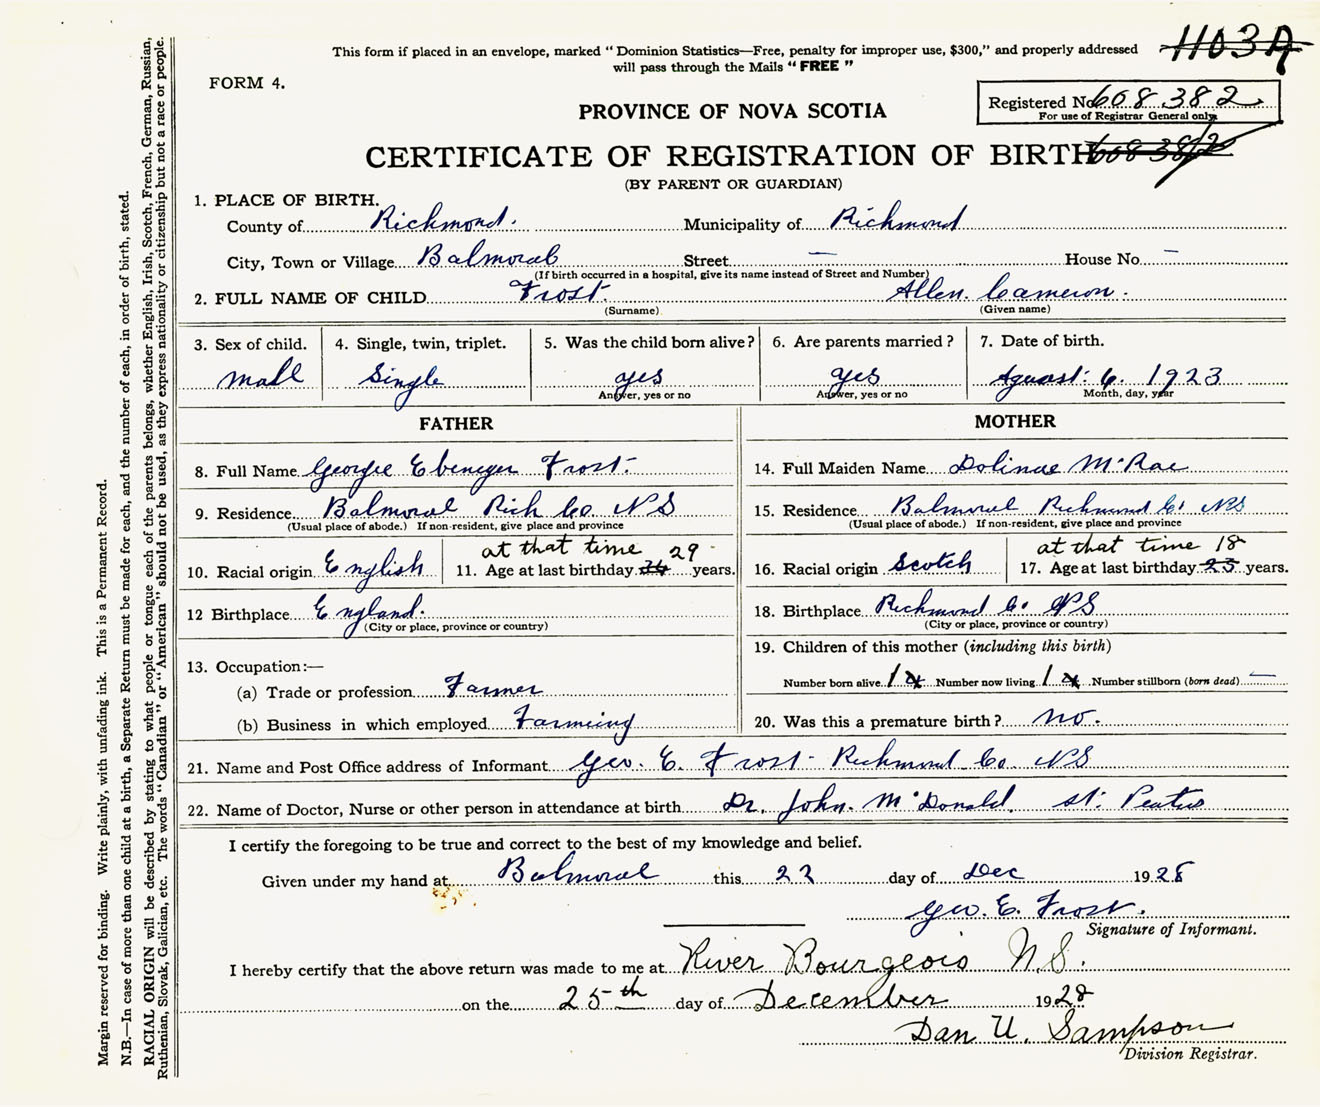 This form if placed in an envelope, marked "Dominion Statistics—Free, penalty for improper use, $300," and properly addressed
will pass through the Mails "FREE"
1103A
FORM 4.
Registered No. 608382
For use of Registrar General only.
PROVINCE OF NOVA SCOTIA
CERTIFICATE OF REGISTRATION OF BIRTH
(BY PARENT OR GUARDIAN)
1. PLACE OF BIRTH.
County of Richmond. Municipality of Richmond
City, Town or Village Balmoral Street — House No. —
(If birth occurred in a hospital, give its name instead of Street and Number)
2. FULL NAME OF CHILD Frost. Allen. Cameron.
(Surname) (Given name)
3. Sex of child. 4. Single, twin, triplet. 5. Was the child born alive? 6. Are parents married? 7. Date of birth.
mall Single yes yes Aguast. 6. 1923
Answer, yes or no Answer, yes or no Month, day, year
FATHER MOTHER
8. Full Name Georgie Ebenezer Frost. 14. Full Maiden Name Dolinae McRae
9. Residence Balmoral Rich Co. NS 15. Residence Balmoral Richmond Co. NS
(Usual place of abode.) If non-resident, give place and province (Usual place of abode.) If non-resident, give place and province
at that time 29 at that time 18
10. Racial origin English 11. Age at last birthday 34 years. 16. Racial origin Scotch 17. Age at last birthday 23 years.
12 Birthplace England. 18. Birthplace Richmond Co. NS
(City or place, province or country) (City or place, province or country)
19. Children of this mother (including this birth)
13. Occupation:—
Number born alive 1 Number now living 1 Number stillborn (born dead) —
(a) Trade or profession Farmer
(b) Business in which employed Farmeing 20. Was this a premature birth? no.
21. Name and Post Office address of Informant Geo. E. Frost Richmond Co NS
22. Name of Doctor, Nurse or other person in attendance at birth Dr. John. McDonald. St. Peatus
I certify the foregoing to be true and correct to the best of my knowledge and belief.
Given under my hand at Balmoral this 22 day of Dec 1928
Geo. E. Frost.
Signature of Informant.
I hereby certify that the above return was made to me at River Bourgeois N.S.
on the 25th day of December 1928
Dan U. Sampson
Division Registrar.
Margin reserved for binding. Write plainly, with unfading ink. This is a Permanent Record.
N.B.—In case of more than one child at a birth, a Separate Return must be made for each, and the number of each, in order of birth, stated.
RACIAL ORIGIN will be described by stating to what people or tongue each of the parents belongs, whether English, Irish, Scotch, French, German, Russian,
Ruthenian, Slovak, Galician, etc. The words "Canadian" or "American" should not be used, as they express nationality or citizenship but not a race or people.